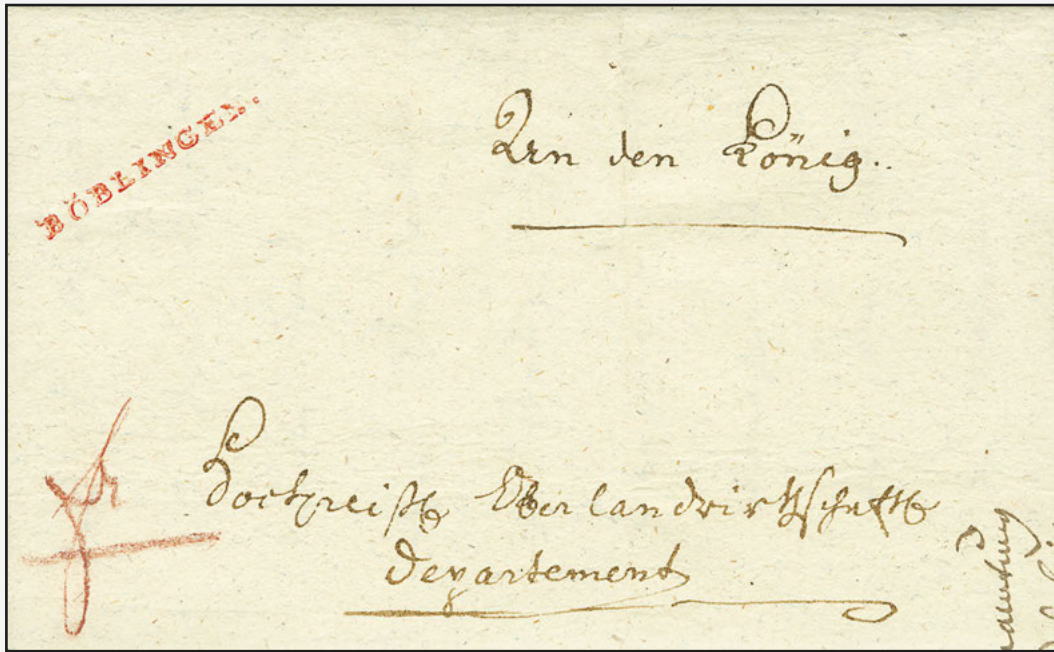 BÖBLINGEN.
An den König.
fr
Hochpreißl Oberlandwirthschafts
Departement